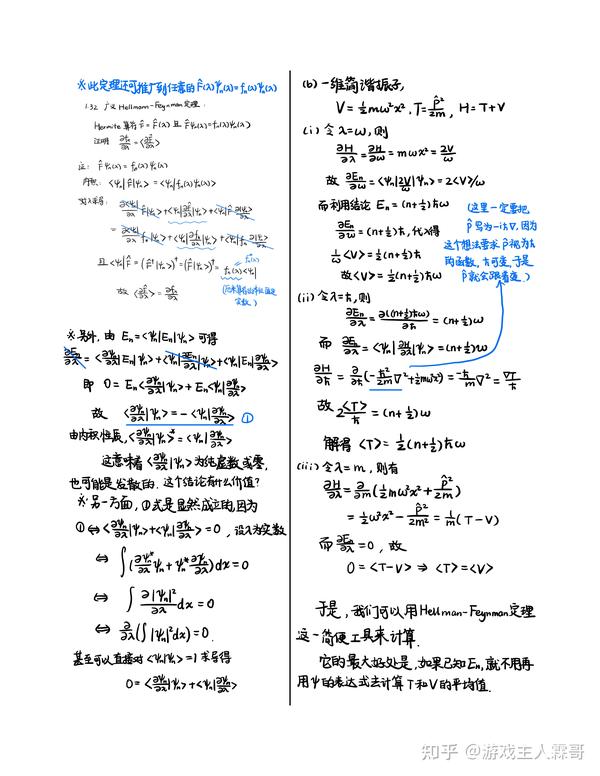 ※此定理还可推广到任意的 F̂(λ)ψn(λ)=fn(λ)ψn(λ)
1.32 广义 Hellmann-Feynman 定理:
Hermite 算符 F̂=F̂(λ) 且 F̂ψn(λ)=fn(λ)ψn(λ)
证明 ∂fn/∂λ=<∂F̂/∂λ>
证: F̂ψn(λ)=fn(λ)ψn(λ)
内积: <ψn|F̂|ψn>=<ψn|fn(λ)ψn(λ)>
对λ求导: <∂ψn/∂λ|F̂|ψn>+<ψn|∂F̂/∂λ|ψn>+<ψn|F̂|∂ψn/∂λ>
=<∂ψn/∂λ|fn|ψn>+<ψn|∂fn/∂λ|ψn>+<ψn|fn|∂ψn/∂λ>
且 <ψn|F̂=(F̂†|ψn>)†=(F̂|ψn>)†=fn(λ)<ψn|
fn*(λ)
故 <∂F̂/∂λ>=∂fn/∂λ
(厄米算符的本征值是实数.)
※另外,由 En=<ψn|En|ψn> 可得
∂En/∂λ=<∂ψn/∂λ|En|ψn>+<ψn|∂En/∂λ|ψn>+<ψn|En|∂ψn/∂λ>
即 0=En<∂ψn/∂λ|ψn>+En<ψn|∂ψn/∂λ>
故 <∂ψn/∂λ|ψn>=-<ψn|∂ψn/∂λ> ①
由内积性质,<∂ψn/∂λ|ψn>*=<ψn|∂ψn/∂λ>
这意味着<∂ψn/∂λ|ψn>为纯虚数或零,
也可能是发散的.这个结论有什么价值?
※另一方面,①式是显然成立的,因为
①⇔<∂ψn/∂λ|ψn>+<ψn|∂ψn/∂λ>=0,设λ为实数
⇔ ∫(∂ψn*/∂λ ψn+ψn* ∂ψn/∂λ)dx=0
⇔ ∫ ∂|ψn|²/∂λ dx=0
⇔ ∂/∂λ(∫|ψn|²dx)=0.
甚至可以直接对<ψn|ψn>=1求导得
0=<∂ψn/∂λ|ψn>+<ψn|∂ψn/∂λ>
(b) 一维简谐振子,
V=½mω²x², T=P̂²/2m, H=T+V
(i) 令λ=ω,则
∂H/∂λ=∂H/∂ω=mωx²=2V/ω
故 ∂En/∂ω=<ψn|2V/ω|ψn>=2<V>/ω
而利用结论 En=(n+½)ħω
∂En/∂ω=(n+½)ħ,代入得
2/ω<V>=(n+½)ħ
故<V>=½(n+½)ħω
(这里一定要把
P̂写为-iħ∇,因为
这个想法要求P̂视为ħ
的函数,ħ可变,于是
P̂就会跟着变.)
(ii) 令λ=ħ,则
∂En/∂λ=∂((n+½)ħω)/∂ħ=(n+½)ω
而 ∂En/∂λ=<ψn|∂H/∂λ|ψn>=(n+½)ω
∂H/∂ħ=∂/∂ħ(-ħ²/2m∇²+½mω²x²)=-ħ/m∇²=2T/ħ
故 2<T>/ħ=(n+½)ω
解得 <T>=½(n+½)ħω
(iii) 令λ=m,则有
∂H/∂λ=∂/∂m(½mω²x²+P̂²/2m)
=½ω²x²-P̂²/2m²=1/m(T-V)
而∂En/∂λ=0,故
0=<T-V>⇒<T>=<V>
于是,我们可以用Hellman-Feynman定理
这一简便工具来计算.
它的最大好处是,如果已知En,就不用再
用ψ的表达式去计算T和V的平均值.
知乎 @游戏主人霖哥